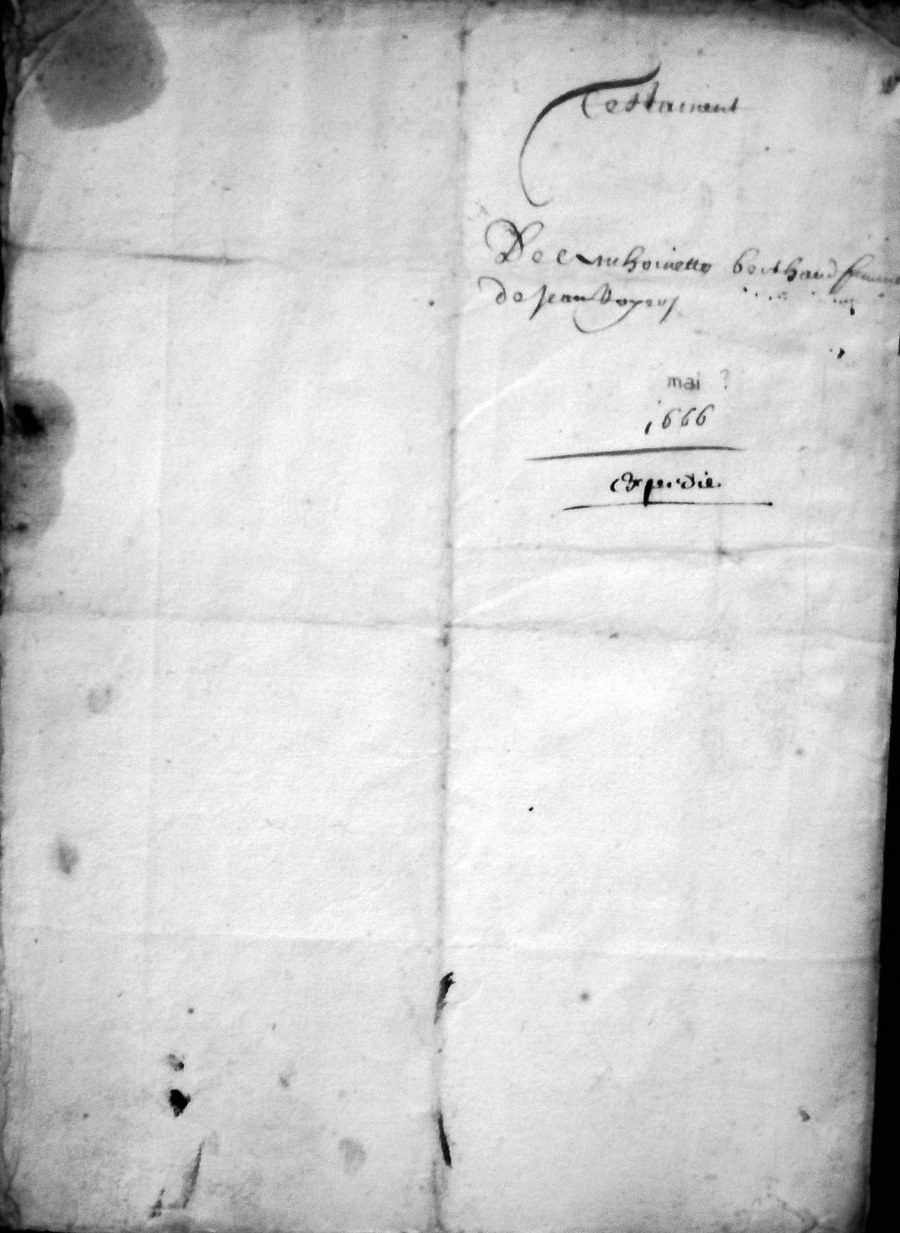 Testament
De Anthoinette berthaud femme
de Jean
mai ?
1666
expedie